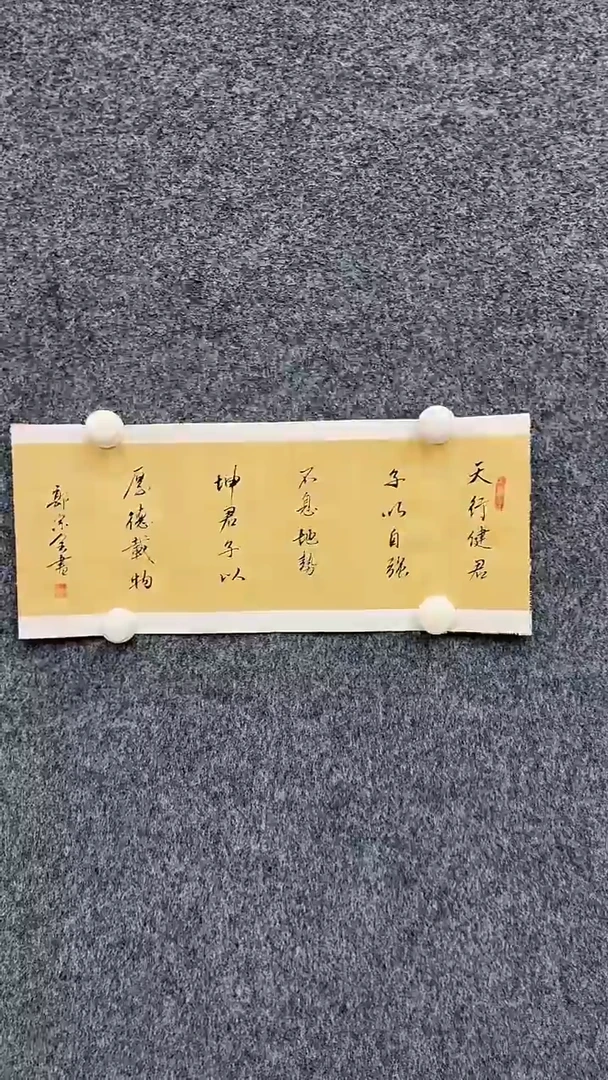 天行健君
子以自强
不息地势
坤君子以
厚德载物
郭宗全书